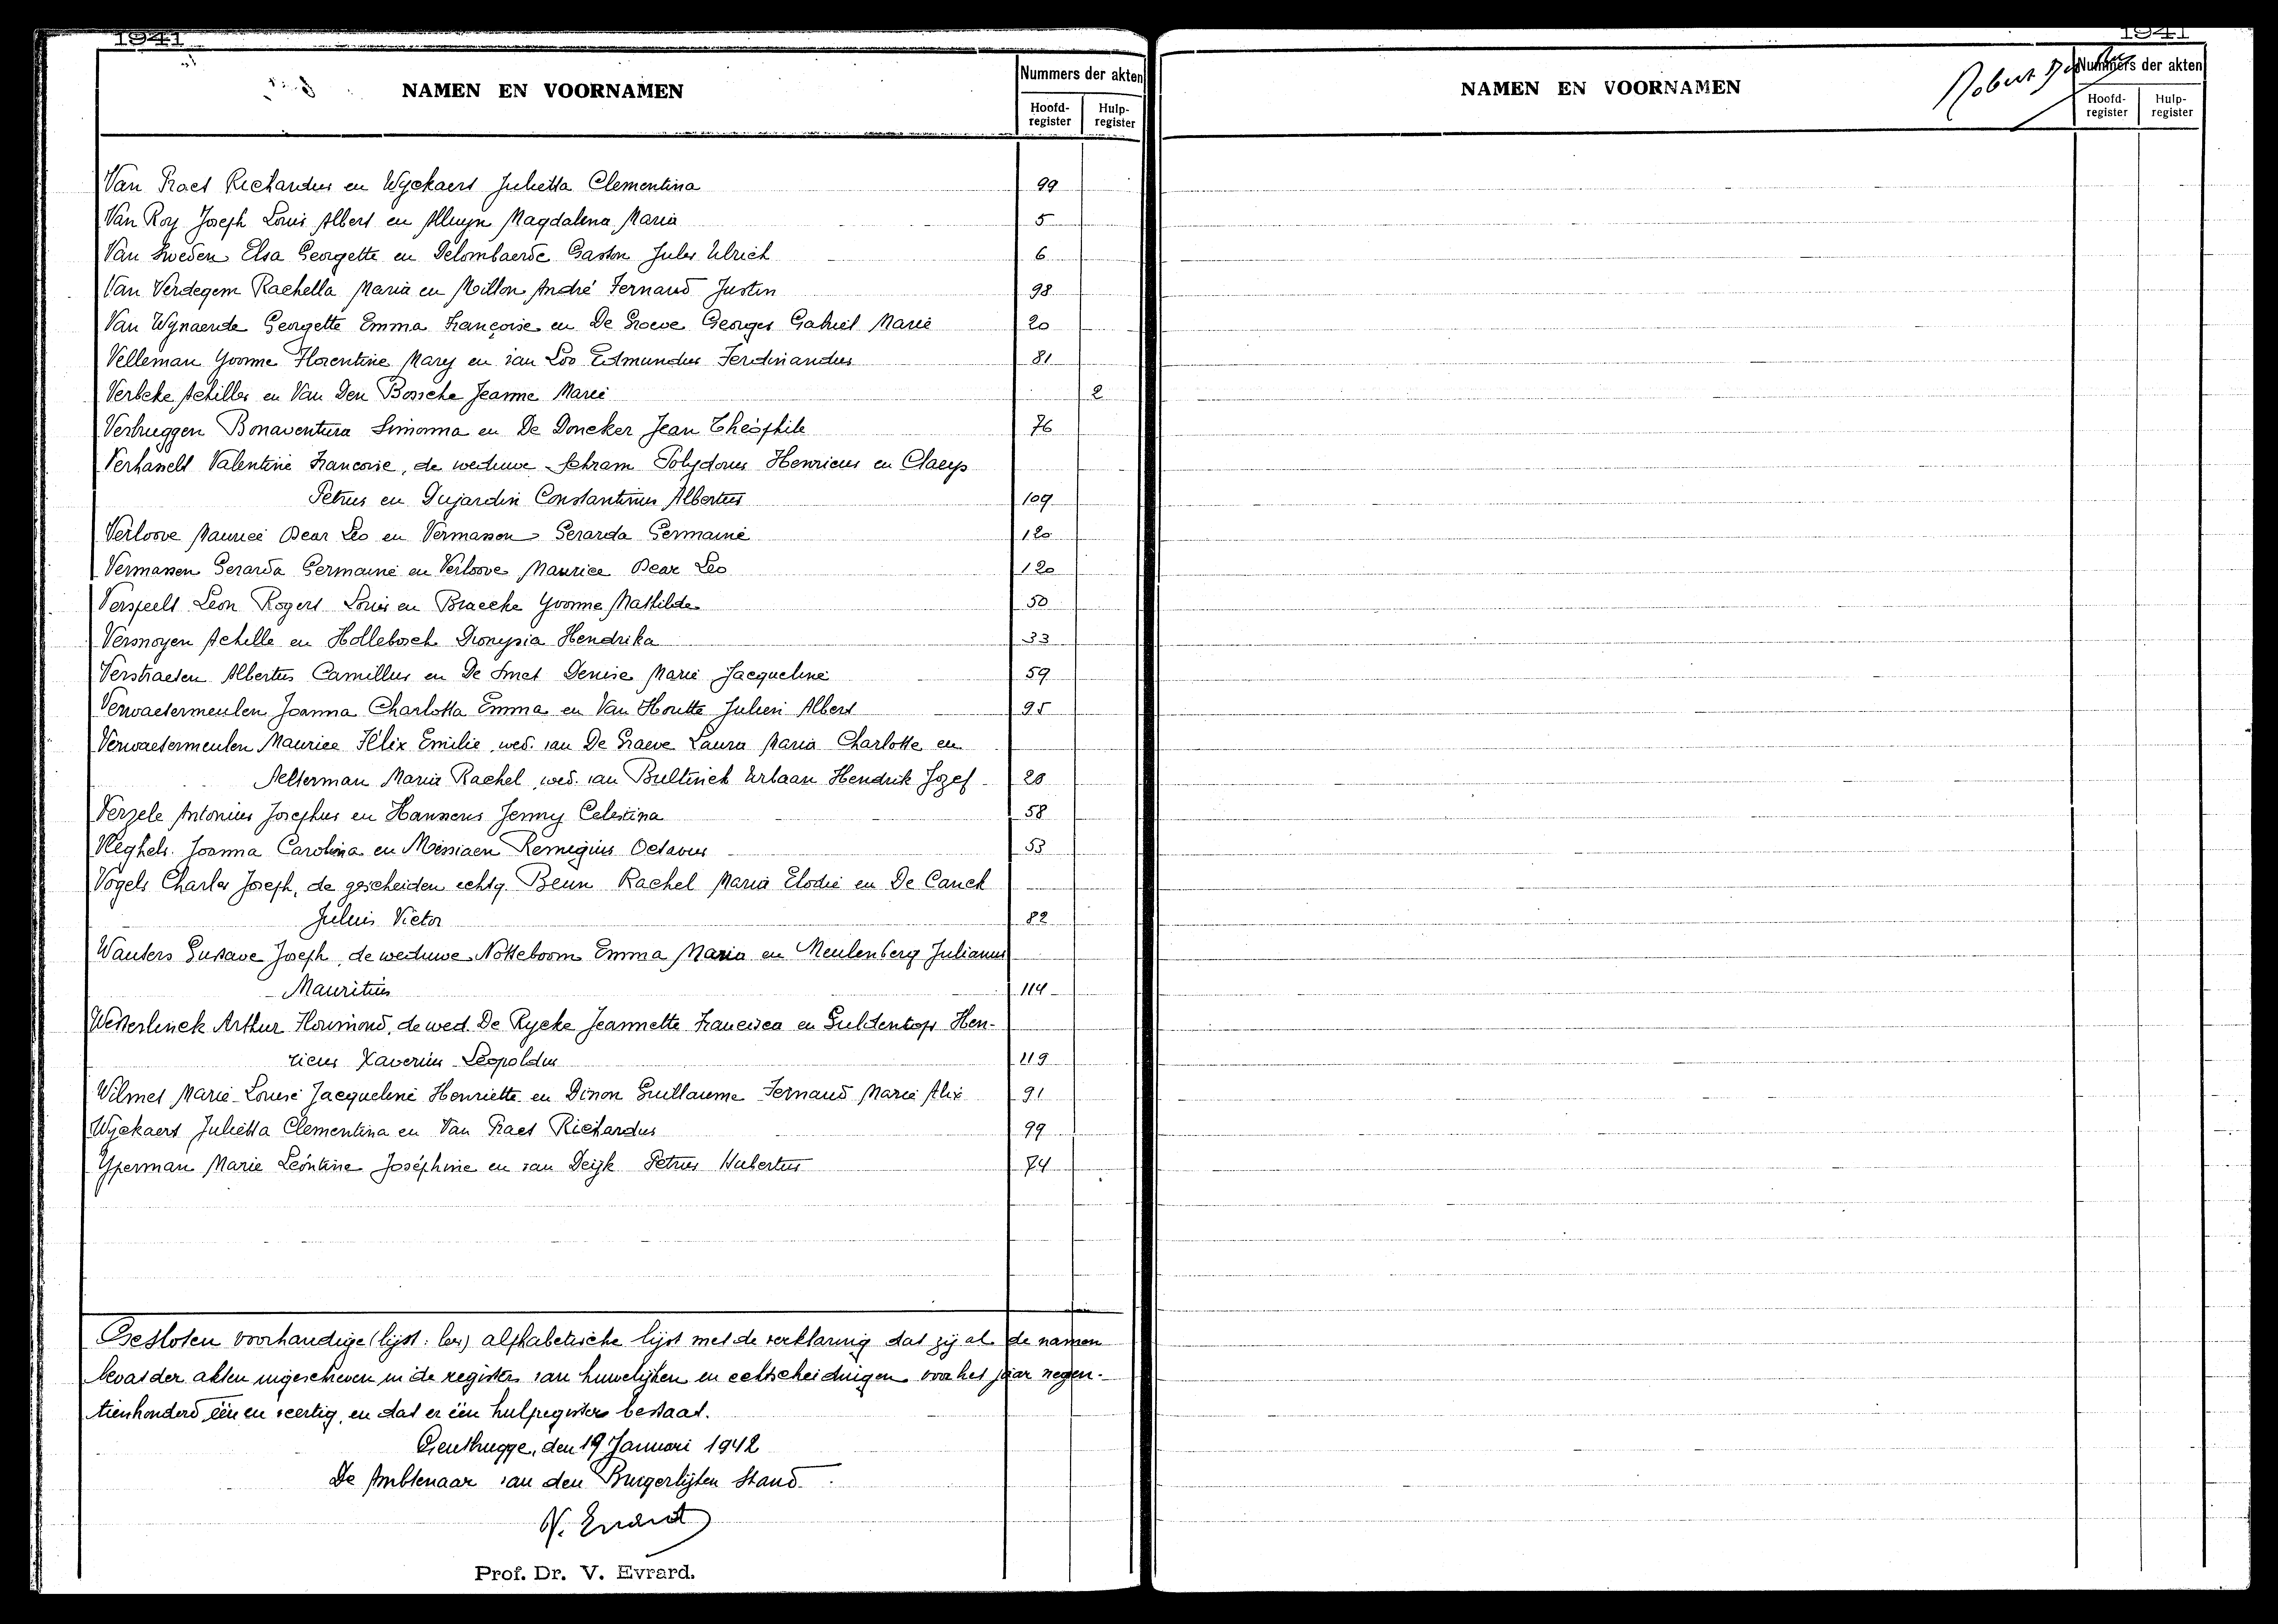 1941
NAMEN EN VOORNAMEN
Nummers der akten
Hoofd-register
Hulp-register
Van Praet Richardus en Wyckaert Julietta Clementina 99
Van Roy Joseph Louis Albert en Alluyn Magdalena Maria 5
Van Sweden Elsa Georgette en Delombaerde Gaston Jules Ulrich 6
Van Verdegem Rachella Maria en Millon André Fernand Justin 98
Van Wynaerde Georgette Emma Françoise en De Groeve Georges Gabriël Marie 20
Velleman Yvonne Florentine Mary en van Loo Edmundus Ferdinandus 81
Verbeke Achilles en Van Den Bossche Jeanne Marie 2
Verbruggen Bonaventura Simonna en De Doncker Jean Théophile 76
Verhasselt Valentine Francoise, de weduwe Schram Polydorus Henricus en Claeys
Petrus en Dujardin Constantinus Albertus 109
Verloove Maurice Oscar Leo en Vermassen Gerarda Germaine 120
Vermassen Gerarda Germaine en Verloove Maurice Oscar Leo 120
Verspeelt Leon Rogert Louis en Braecke Yvonne Mathilde 50
Versnoyen Achille en Hollebosch Dionysia Hendrika 33
Verstraeten Albertus Camillus en De Smet Denise Marie Jacqueline 59
Verwaetermeulen Joanna Charlotta Emma en Van Houtte Julien Albert 95
Verwaetermeulen Maurice Félix Emilie, wed. van De Graeve Laura Maria Charlotte en
Aelterman Maria Rachel, wed. van Bultinck Urbaan Hendrik Jozef 28
Verzele Antonius Josephus en Hanssens Jenny Celestina 58
Vleghels Joanna Carolina en Messiaen Remegius Octavus 53
Vogels Charles Joseph, de gescheiden echtg. Beun Rachel Maria Elodie en De Canck
Julius Victor 82
Wauters Gustave Joseph, de weduwe Notteboom Emma Maria en Meulenberg Julianus
Mauritius 114
Westerlinck Arthur Florimond, de wed. De Rycke Jeannette Francisca en Guldentops Hen-
ricus Xaverius Leopoldus 119
Wilmet Marie-Louise Jacqueline Henriette en Dinon Guillaume Fernand Marie Alix 91
Wyckaert Julietta Clementina en Van Praet Richardus 99
Yperman Marie Leóntine Joséphine en van Deijk Petrus Hubertus 74
Gesloten voorhandige (lijst: les) alphabetische lijst met de verklaring dat zij al de namen
bevat der akten ingeschreven in de registers van huwelijken en echtscheidingen voor het jaar negen-
tienhonderd één en veertig, en dat er één hulpregister bestaat.
Gentbrugge, den 19 Januari 1942
De Ambtenaar van den Burgerlijken Stand
V. Evrard
Prof. Dr. V. Evrard.
1941
NAMEN EN VOORNAMEN
Robert
Nummers der akten
Hoofd-register
Hulp-register